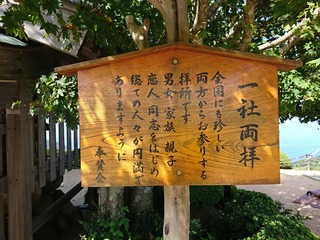 一社両拝
全国にも珍しい
両方からお参りする
拝所です
男女 家族 親子
恋人 同志をはじめ
総ての人々が円満で
ありますように
奉賛会